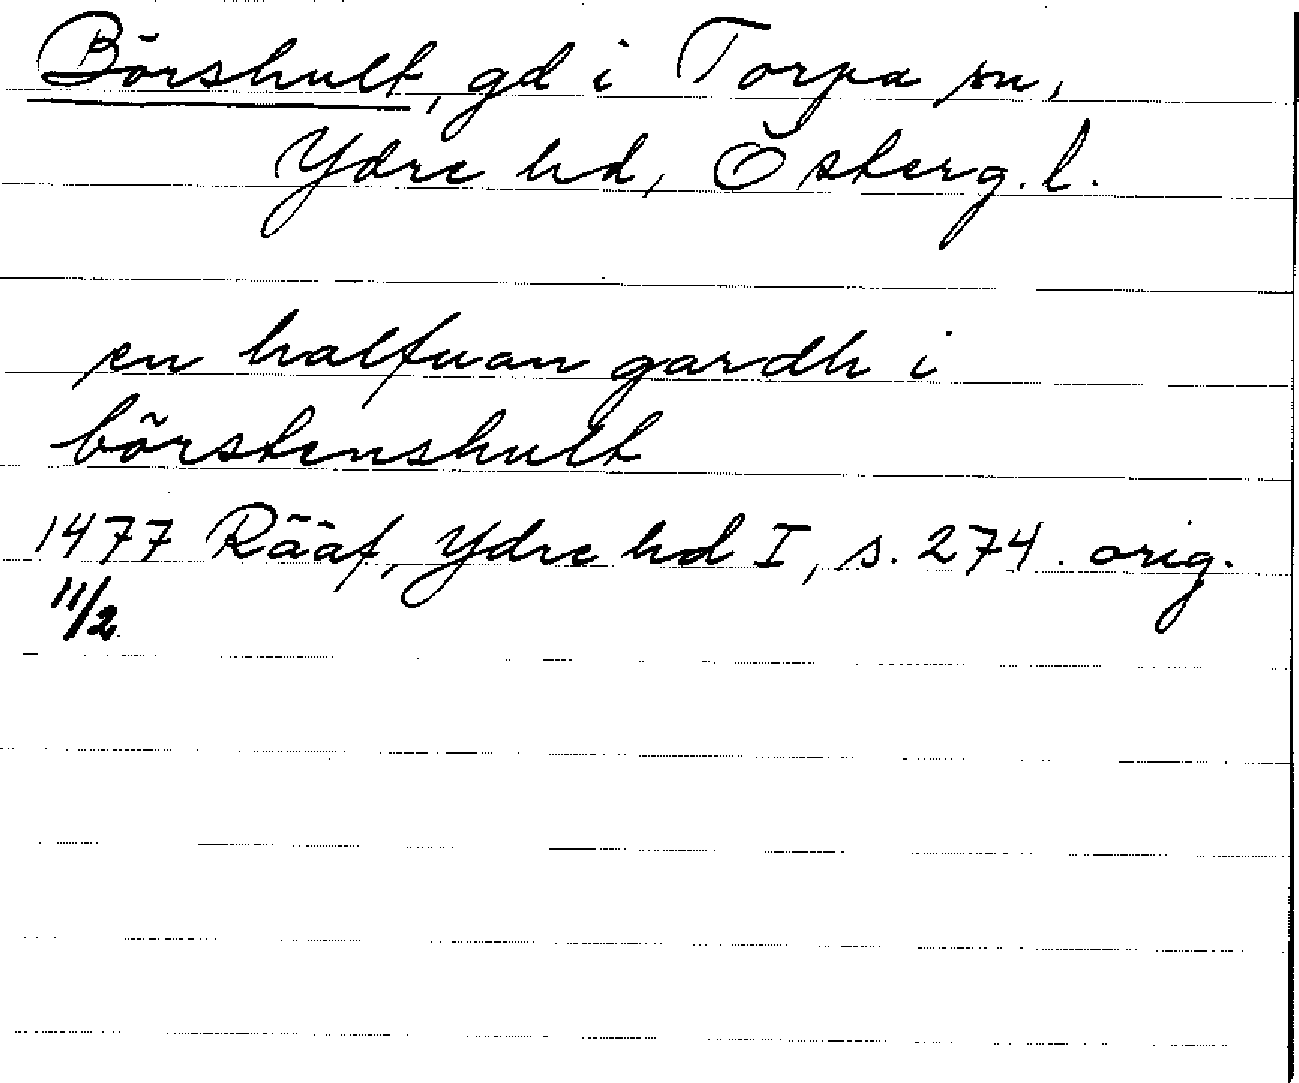 Börshult, gd i Torpa sn,
Ydre hd, Österg. l.
en halfuan gardh i
börstenshult
1477 Rääf, Ydre hd I, s. 274. orig.
11/2